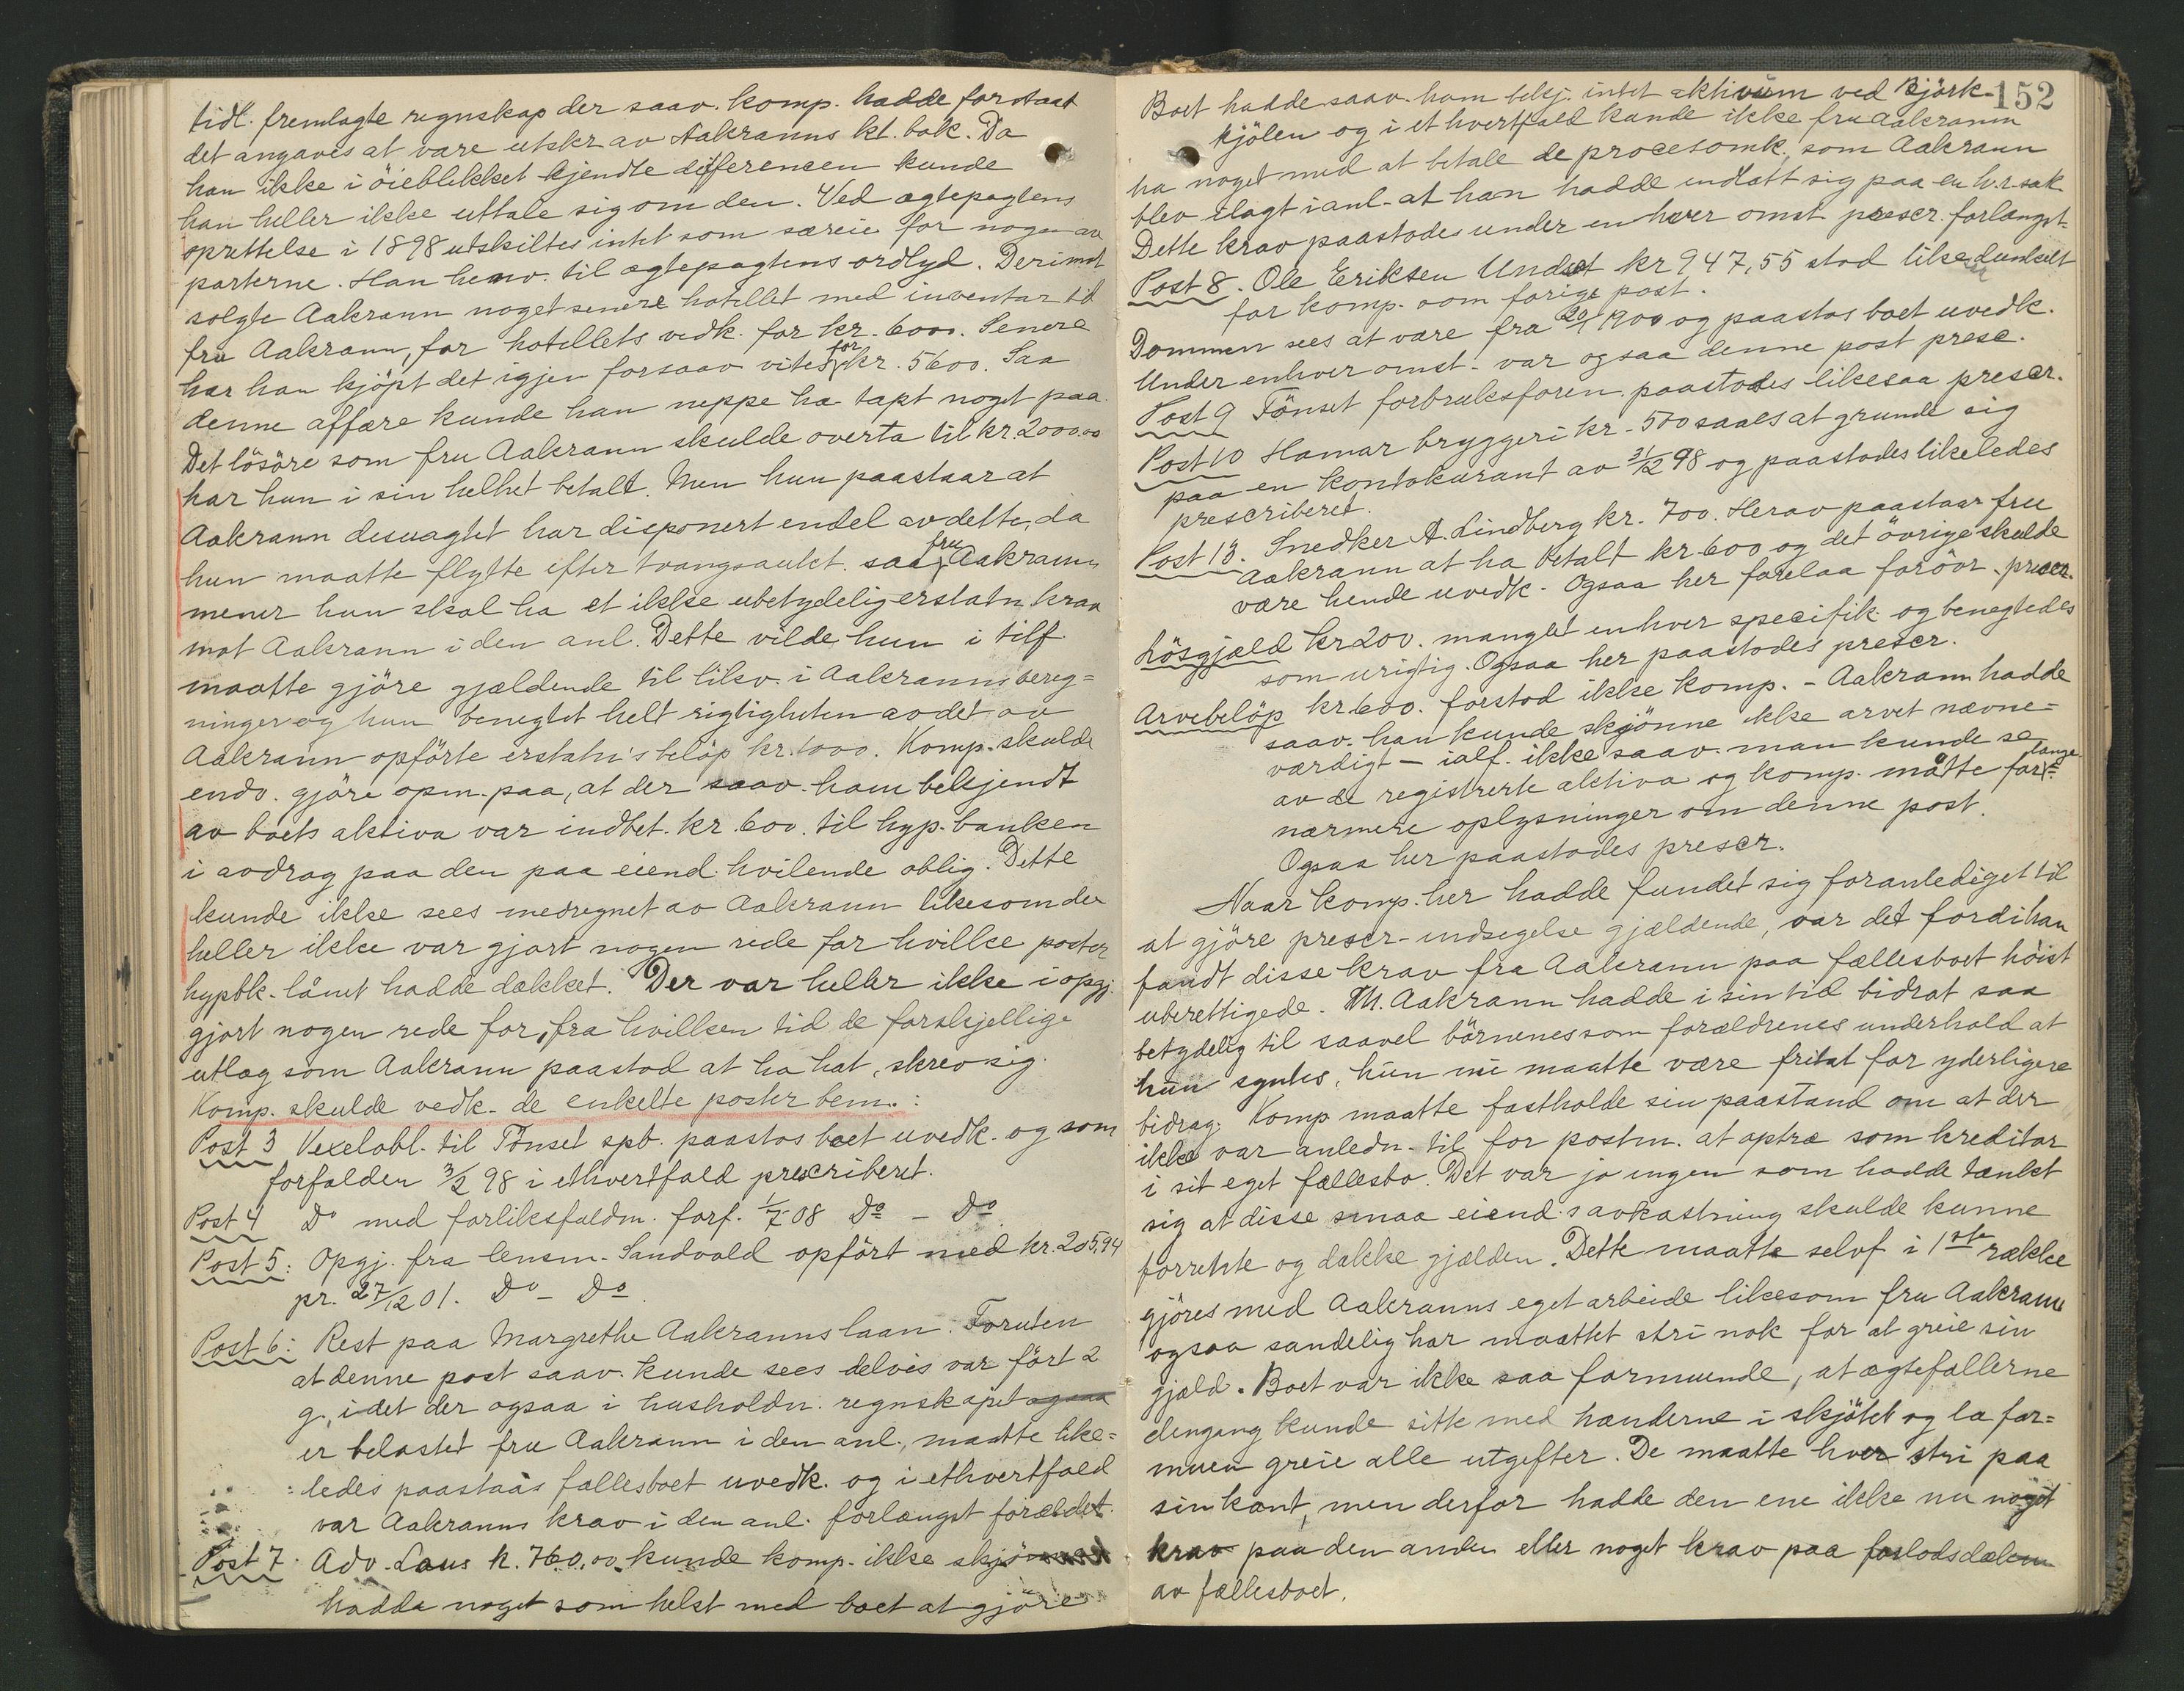 tidl. fremlagte regnskap der saav. komp. hadde forstaat
det angaves at være utskr av Aakranns kt. bok. Da
han ikke i öieblikket kjendte differencen kunde
han heller ikke uttale sig om den. Ved ægtepagtens
oprettelse i 1898 utskiltes intet som særeie for nogen av
parterne. Han henv. til ægtepagtens ordlyd. Derimot
solgte Aakrann noget senere hotellet med inventar til
fru Aakrann, for hotellets vedk. for kr. 6000. Senere
har han kjöpt det igjen forsaav vites for kr. 5600. Saa
denne affære kunde han neppe ha tapt noget paa.
Det lösöre som fru Aakrann skulde overta til kr. 2000.00
har hun i sin helhet betalt. Men hun paastaar at
Aakrann desuagtet har disponert endel av dette, da
hun maatte flytte efter tvangsaukt. saa fru Aakrann
mener hun skal ha et ikke ubetydelig erstatn. krav
mot Aakrann i den anl. Dette vilde hun i tilf.
maatte gjöre gjældende til likv. i Aakranns bereg=
ninger og hun benegtet helt rigtigheten av det av
Aakrann opförte erstatn's belöp kr. 1000. Komp. skulde
endv. gjöre opm. paa, at der saav. ham bekjendt
av boets aktiva var indbet. kr. 600. til hyp. banken
i avdrag paa den paa eiend. hvilende oblig. Dette
kunde ikke sees medregnet av Aakrann likesom der
heller ikke var gjort nogen rede for hvilke poster
hypotk. lånet hadde dækket. Der var heller ikke i opgj.
gjort nogen rede for, fra hvilken tid de forskjellige
utlæg som Aakrann paastod at ha hat, skrev sig.
Komp. skulde vedk. de enkelte poster bem.:
Post 3 Vexelobl. til Tönset spb. paastos boet uvedk. og som
forfalden 3/2 98 i ethvertfald prescriberet.
Post 4 Do med forliksfaldm. forf. 1/7 08 Do - Do.
Post 5: Opgj. fra lensm. Sandvold opfört med kr. 205,94
pr. 27/12 01. Do - Do.
Post 6: Rest paa Margrethe Aakranns laan. Foruten
at denne post saav. kunde sees delvis var fört 2
g., idet der ogsaa i husholdn. regnskapet ogsaa
er belastet fru Aakrann i den anl., maatte like=
ledes paastaas fællesboet uvedk. og i ethvertfald
var Aakranns krav i den anl. forlængst forældet.
Post 7. Adv. Laus k. 760.00 kunde komp. ikke skjönne
hadde noget som helst med boet at gjöre
152
Boet hadde saav. ham bekj. intet aktivum ved Björk-
kjölen og i et hvertfald kunde ikke fru Aakrann
ha noget med at betale de procesomk. som Aakrann
blev ilagt i anl. at han hadde indlatt sig paa en h.r.sak
Dette krav paastodes under en hver omst prescr. forlængst.
Post 8. Ole Eriksen Undset kr 947,55 stod likesaa dunkelt
for komp. som forige post.
Dommen sees at være fra 20/1 1900 og paastos boet uvedk.
Under enhver omst. var ogsaa denne post presc.
Post 9 Tönset forbruksforen. paastodes likesaa prescr.
Post 10 Hamar bryggeri kr. 500 saaes at grunde sig
paa en kontokurant av 31/12 98 og paastodes likeledes
prescriberet.
Post 13. Snedker A. Lindberg kr. 700. Herav paastaar fru
Aakrann at ha betalt kr 600 og det övrige skulde
være hende uvedk. Ogsaa her forelaa forövr. prescr.
Lösgjæld kr 200. manglet enhver specifik. og benegtedes
som urigtig. Ogsaa her paastodes prescr.
Arvebelöp kr 600. forstod ikke komp. - Aakrann hadde
saav. han kunde skjönne ikke arvet nævne=
værdigt - ialf. ikke saav. man kunde se
av de registrerte aktiva og komp. måtte forlange
nærmere oplysninger om denne post.
Ogsaa her paastodes prescr.
Naar komp. her hadde fundet sig foranlediget til
at gjöre prescr-indsigelse gjældende, var det fordi han
fandt disse krav fra Aakrann paa fællesboet höist
uberettigede. M. Aakrann hadde i sin tid bidrat saa
betydelig til saavel börnenes som forældrenes underhold at
hun syntes, hun nu maatte være fritat for yderligere
bidrag. Komp maatte fastholde sin paastand om at der
ikke var anledn. til for postm. at optræ som kreditor
i sit eget fællesbo. Det var jo ingen som hadde tænkt
sig at disse smaa eiend.s avkastning skulde kunne
forrente og dække gjælden. Dette maatte selvf. i 1ste række
gjöres med Aakranns eget arbeide likesom fru Aakrann
ogsaa sandelig har maattet stri nok for at greie sin
gjæld. Boet var ikke saa formuende, at ægtefællerne
dengang kunde sitte med hænderne i skjötet og la for=
muen greie alle utgifter. De maatte hver stri paa
sin kant, men derfor hadde den ene ikke nu noget
krav paa den anden eller noget krav paa forlodsdækn
av fællesboet.